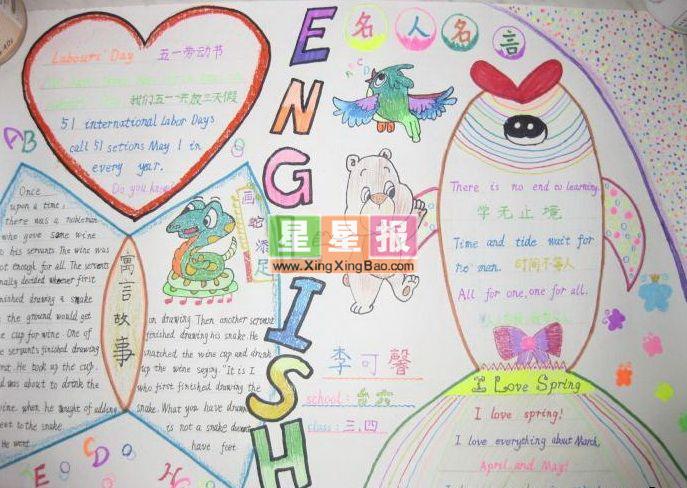 Labours' Day 五一劳动节
我们五一共放三天假
51 international Labor Days
call 51 setions May 1 in
every year.
Do you know
AB
Once
upon a time,
there was a nobleman
who gove some wine
to his servants. The wine was
not though for all. The servants
finally decided whoever first
finished drawing a snake
the ground would get
cup for wine. One of
servants finished drawing
first. He took up the cup
and was about to drink the
wine when he thought of adding
feet to the snake.
He went
寓言故事
画蛇添足
on drawing. Then another servant
finished drawing his snake. He
snatched the wine cup and drank
up the wine saying. "It is I
who first finished drawing the
snake. What you have drawn
is not a snake
have feet
ENGLISH
ABCD
名人名言
There is no end to learning.
学无止境
Time and tide wait for
no man. 时间不等人
All for one, one for all.
星星报
www.XingXingBao.com
李可馨
school: 台六
class: 三.四
I Love Spring
I love spring!
I love everything about March,
April, and May!